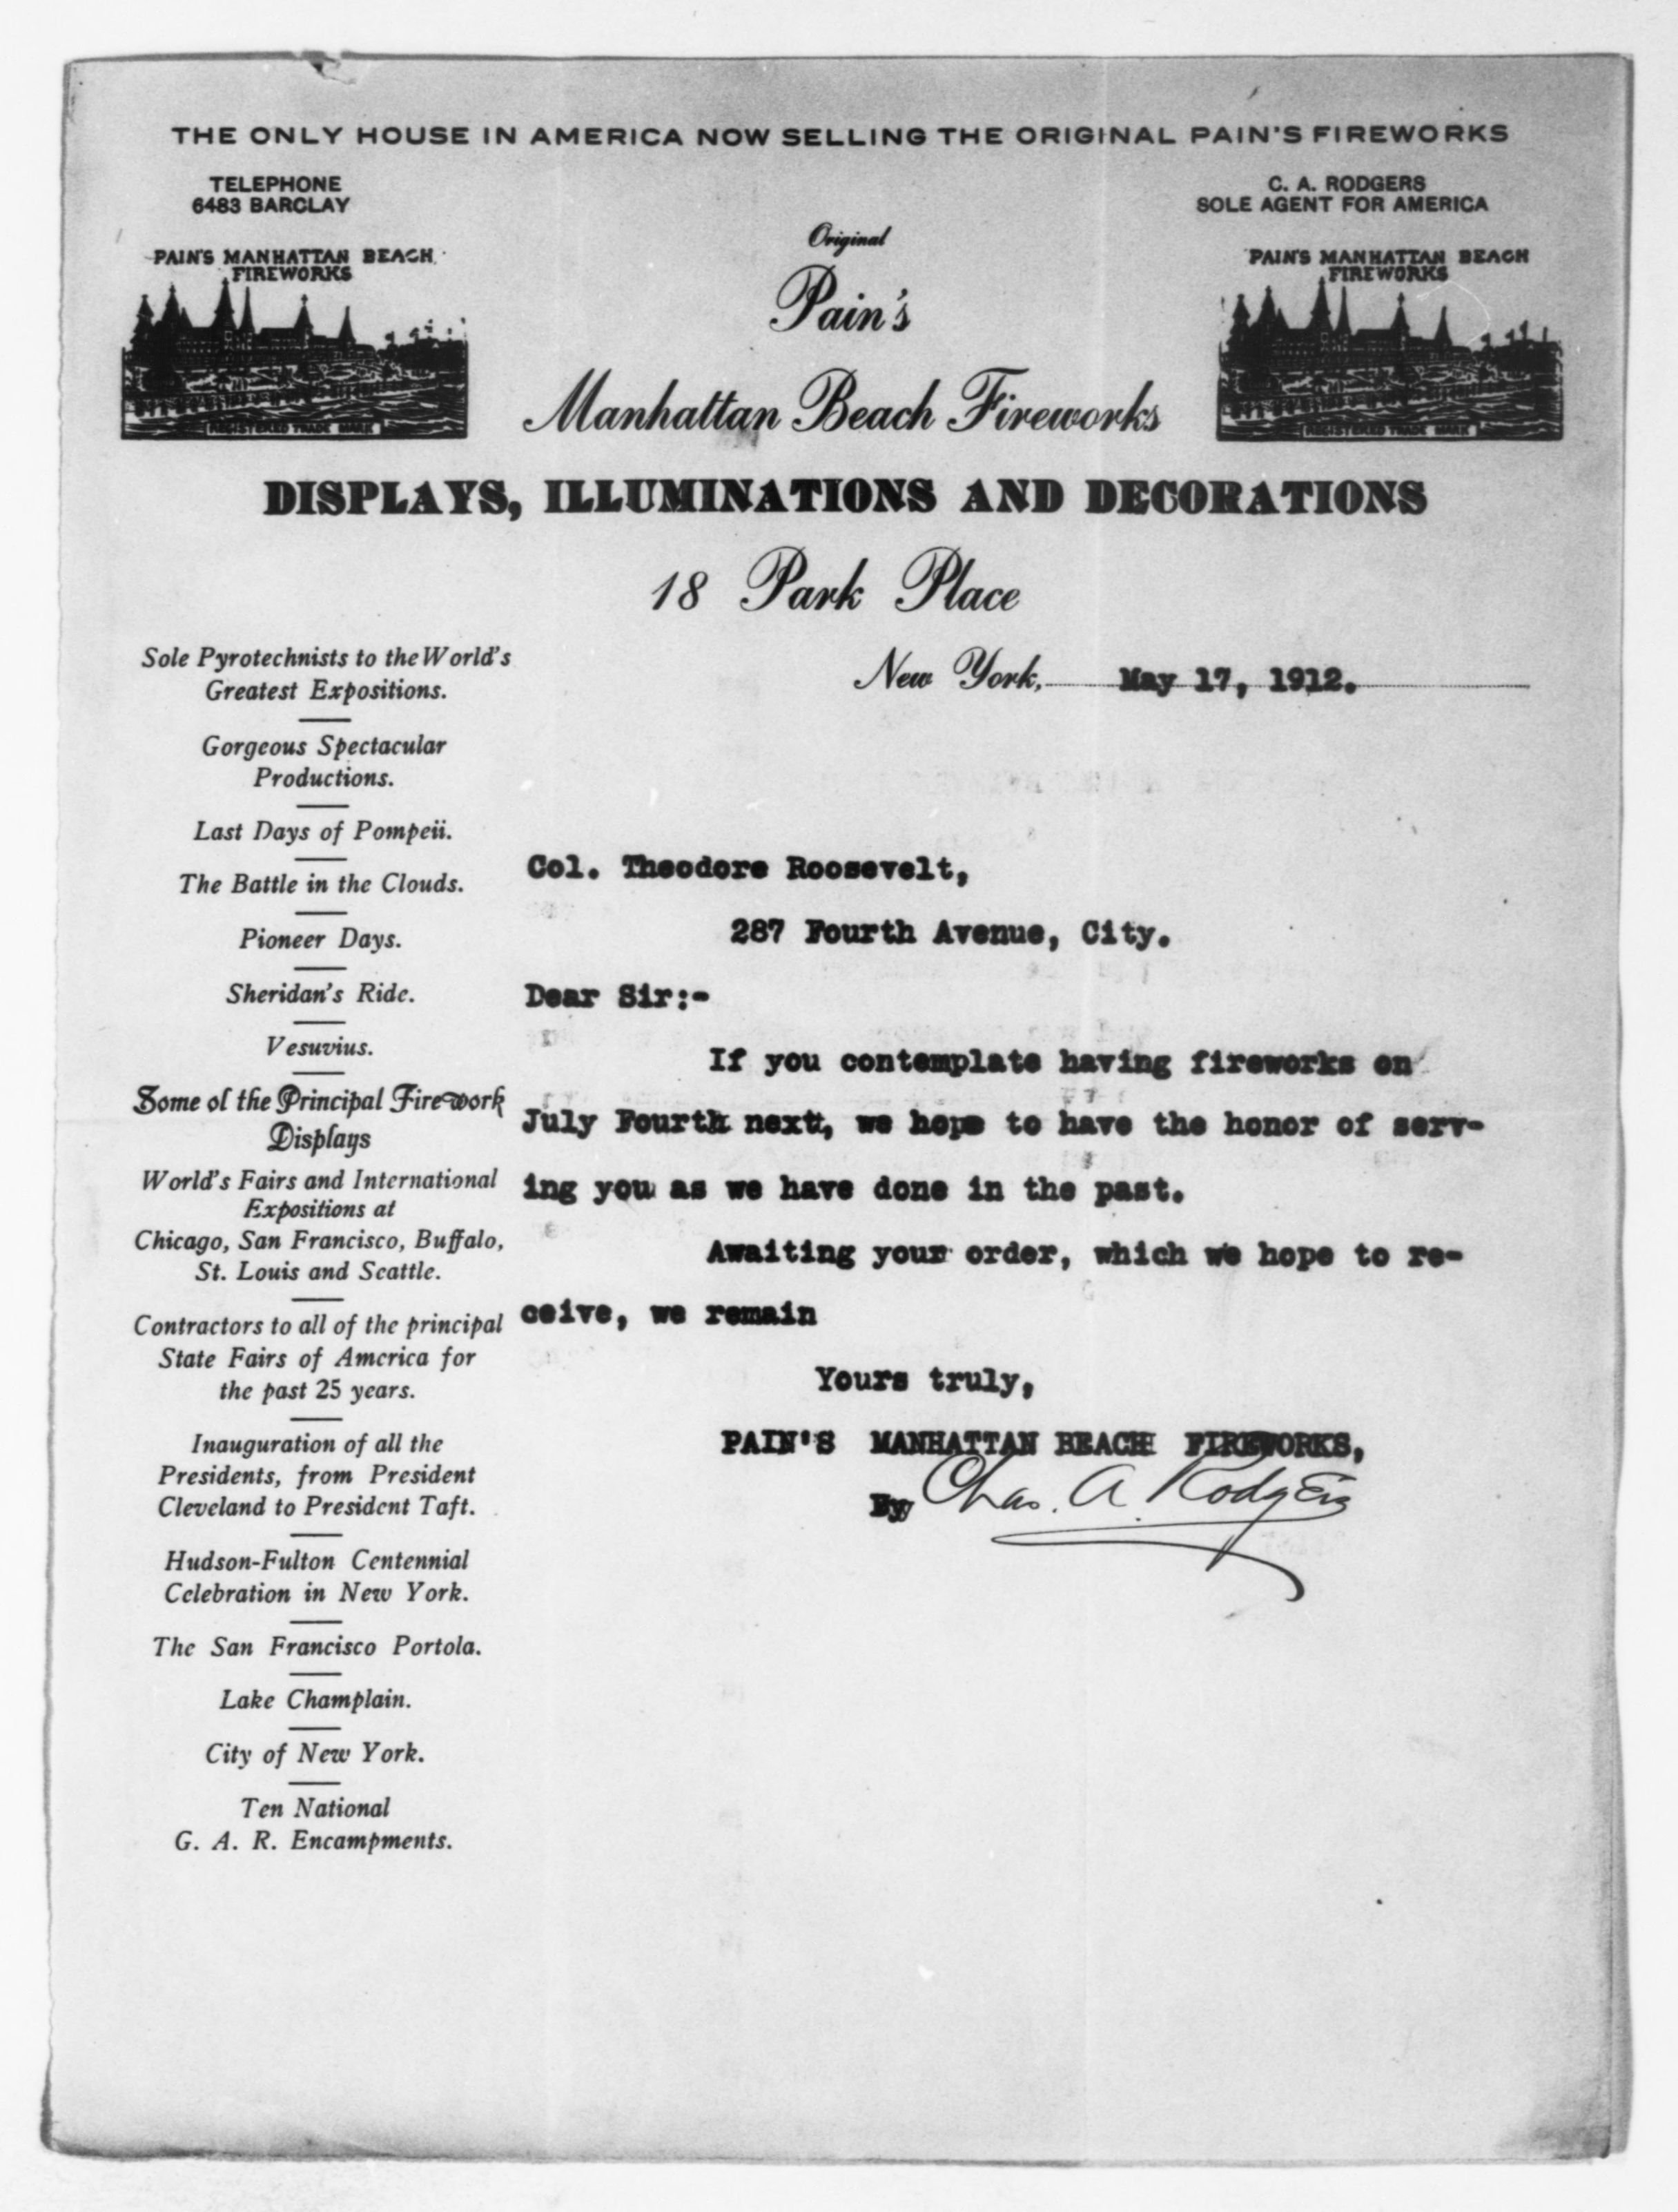 THE ONLY HOUSE IN AMERICA NOW SELLING THE ORIGINAL PAIN'S FIREWORKS
TELEPHONE
6483 BARCLAY
C. A. RODGERS
SOLE AGENT FOR AMERICA
PAIN'S MANHATTAN BEACH
FIREWORKS
REGISTERED TRADE MARK
Original
Pain's
Manhattan Beach Fireworks
PAIN'S MANHATTAN BEACH
FIREWORKS
REGISTERED TRADE MARK
DISPLAYS, ILLUMINATIONS AND DECORATIONS
18 Park Place
New York, May 17, 1912.
Sole Pyrotechnists to the World's
Greatest Expositions.
Gorgeous Spectacular
Productions.
Last Days of Pompeii.
The Battle in the Clouds.
Pioneer Days.
Sheridan's Ride.
Vesuvius.
Some of the Principal Firework
Displays
World's Fairs and International
Expositions at
Chicago, San Francisco, Buffalo,
St. Louis and Seattle.
Contractors to all of the principal
State Fairs of America for
the past 25 years.
Inauguration of all the
Presidents, from President
Cleveland to President Taft.
Hudson-Fulton Centennial
Celebration in New York.
The San Francisco Portola.
Lake Champlain.
City of New York.
Ten National
G. A. R. Encampments.
Col. Theodore Roosevelt,
287 Fourth Avenue, City.
Dear Sir:-
If you contemplate having fireworks on
July Fourth next, we hope to have the honor of serv-
ing you as we have done in the past.
Awaiting your order, which we hope to re-
ceive, we remain
Yours truly,
PAIN'S MANHATTAN BEACH FIREWORKS,
By Chas. A. Rodgers